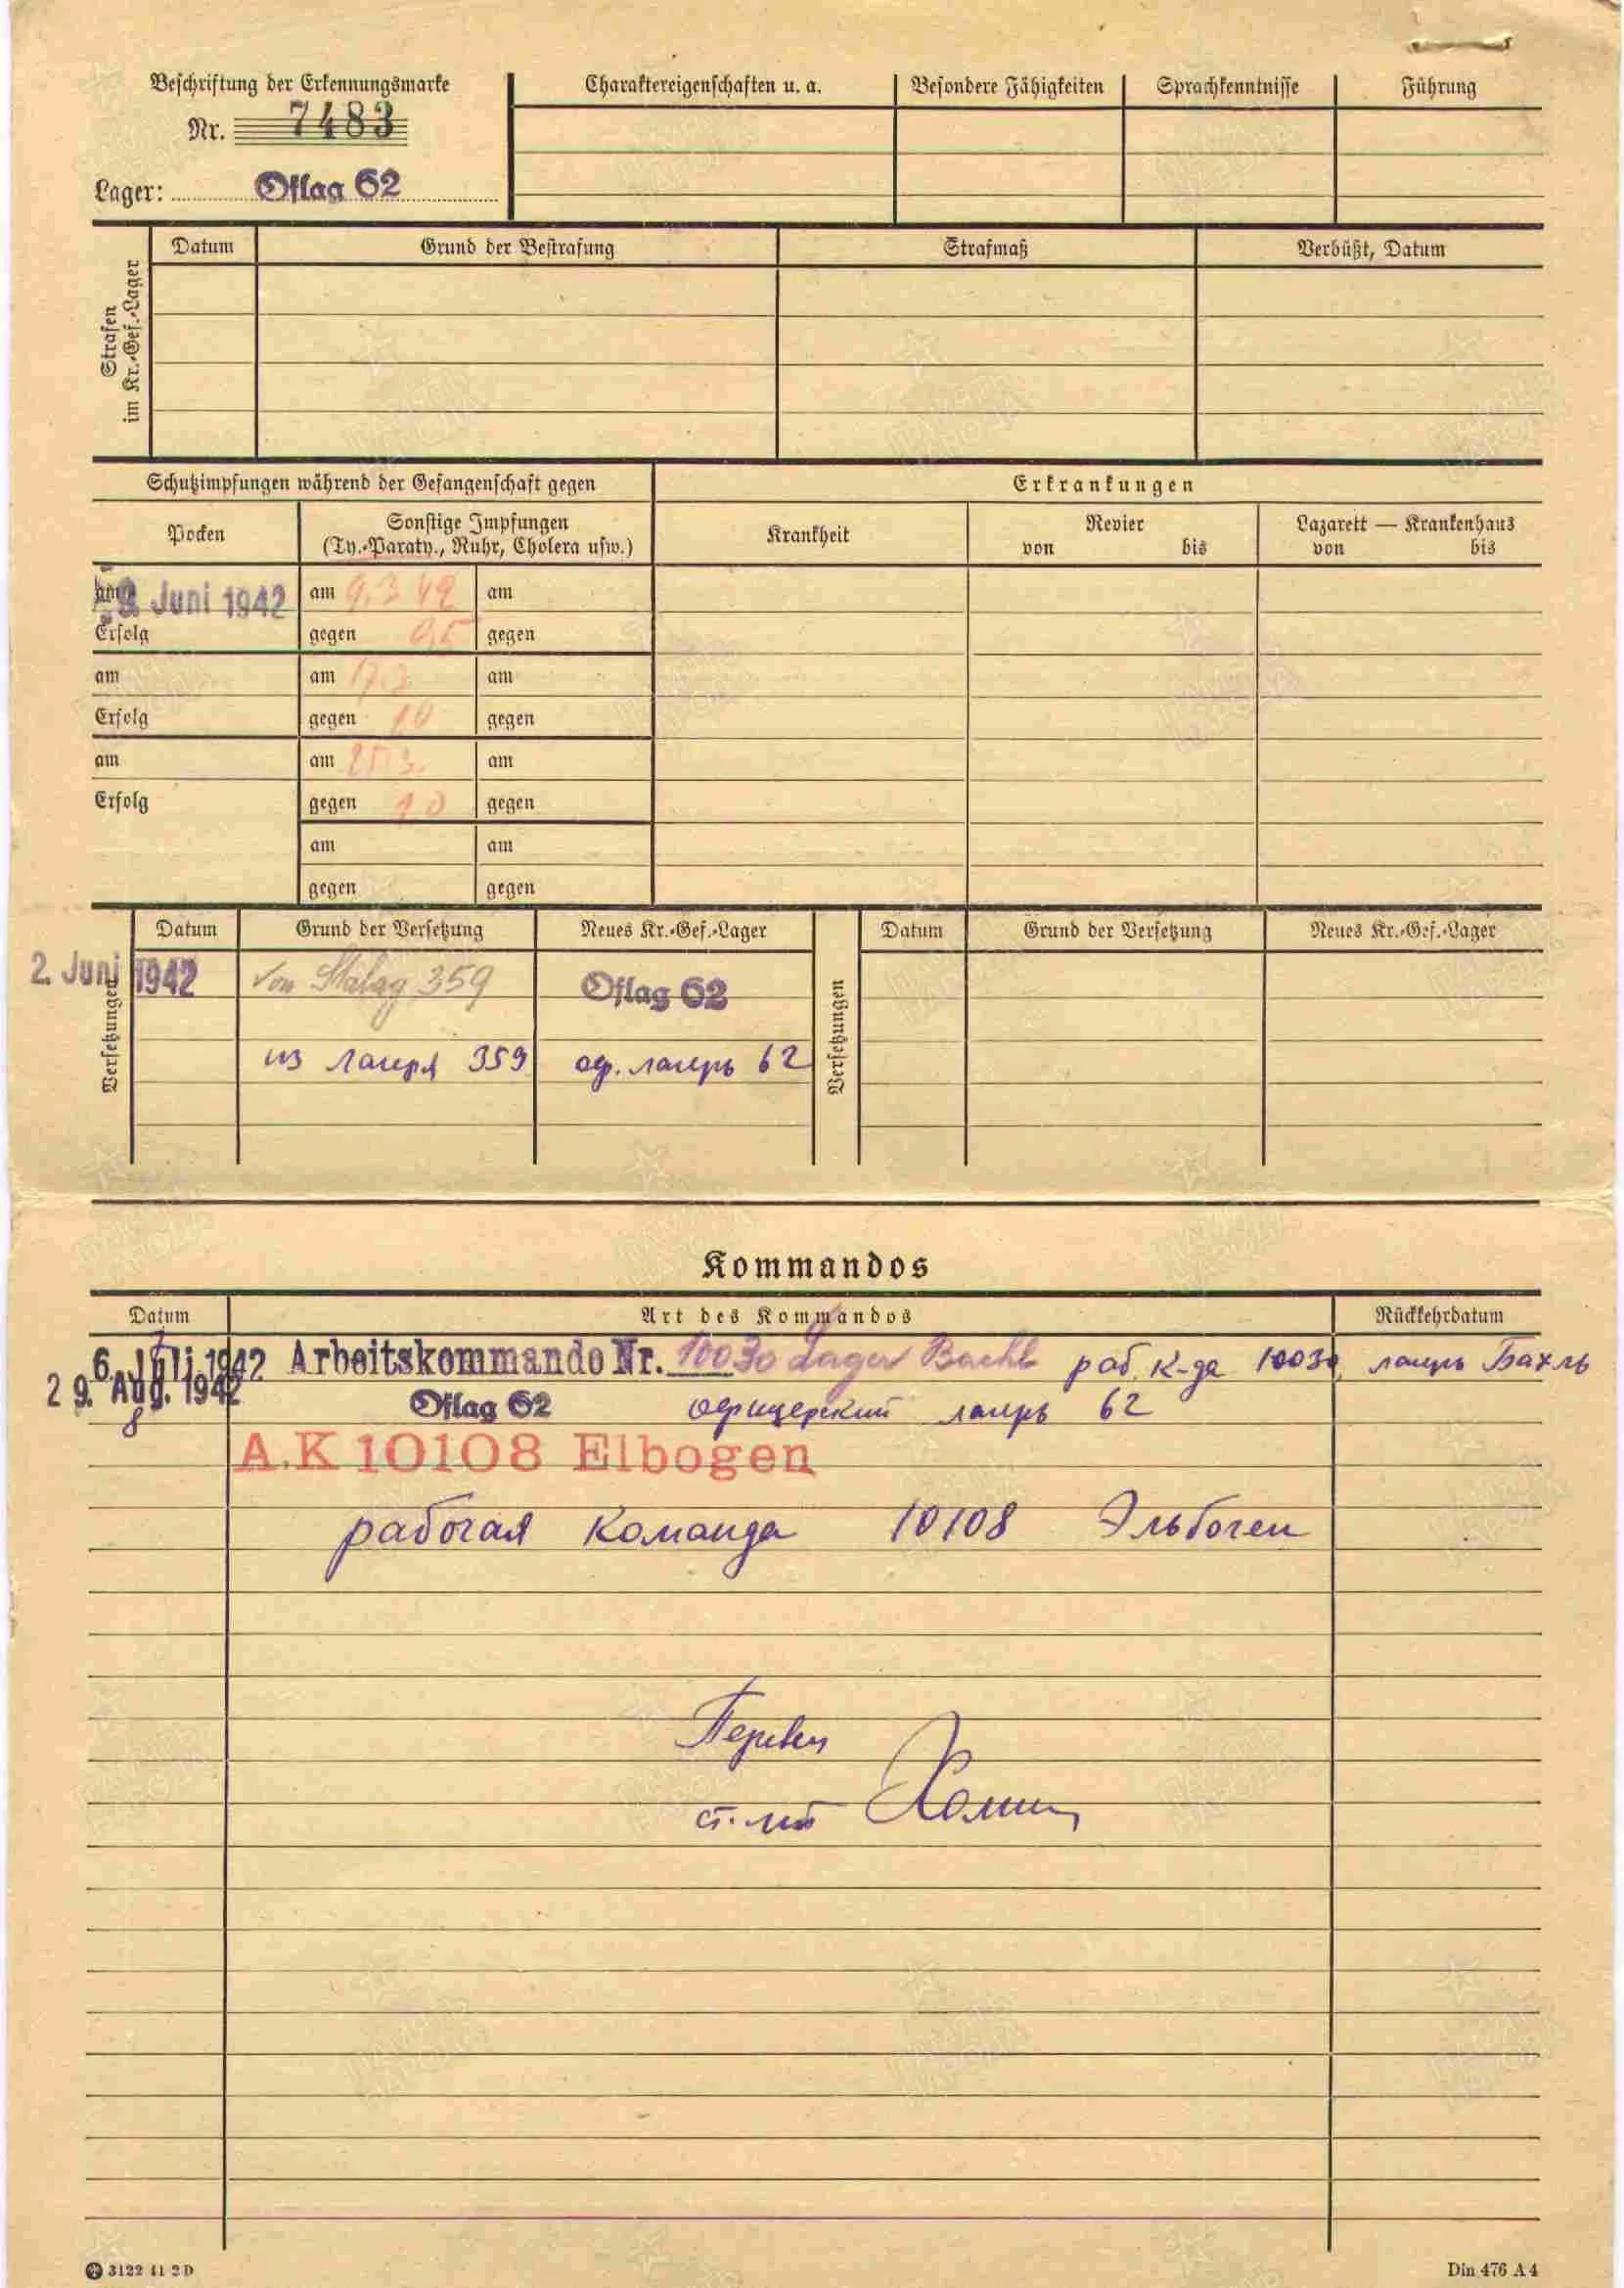 Beschriftung der Erkennungsmarke
Nr. 7483
Lager: Oflag 62
Charaktereigenschaften u. a. Besondere Fähigkeiten Sprachkenntnisse Führung
Strafen im Kr.-Gef.-Lager
Datum Grund der Bestrafung Strafmaß Verbüßt, Datum
Schutzimpfungen während der Gefangenschaft gegen Erkrankungen
Pocken Sonstige Impfungen (Ty.-Paraty., Ruhr, Cholera usw.) Krankheit Revier von bis Lazarett — Krankenhaus von bis
Juni 1942 am 9.3 42 am
Erfolg gegen 0,5 gegen
am am 17.3 am
Erfolg gegen 1,0 gegen
am am 25.3. am
Erfolg gegen 1,0 gegen
am am
gegen gegen
Versetzungen Datum Grund der Versetzung Neues Kr.-Gef.-Lager Versetzungen Datum Grund der Versetzung Neues Kr.-Gef.-Lager
2. Juni 1942 von Stalag 359 Oflag 62
из лагеря 359 оф. лагерь 62
Kommandos
Datum Art des Kommandos Rückkehrdatum
6. Juli 1942 Arbeitskommando Nr. 10030 Lager Bachl раб. к-да 10030 лагерь Бахль
29. Aug. 1942 Oflag 62 офицерский лагерь 62
8
A.K 10108 Elbogen
рабочая команда 10108 Эльбоген
Перевел
ст. л-т
3122 41 2 D
Din 476 A 4